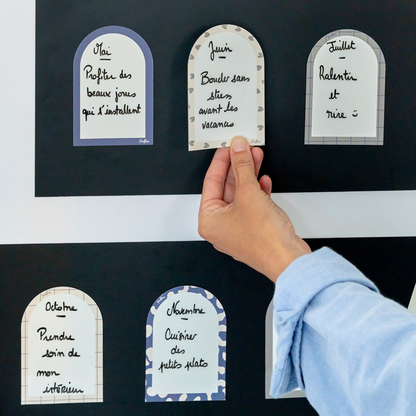 Mai
Profiter des
beaux jours
qui s'installent
Juin
Boucler sans
stress
avant les
vacances
Juillet
Ralentir
et
rire
Octobre
Prendre
soin de
mon
intérieur
Novembre
Cuisiner
des
petits plats